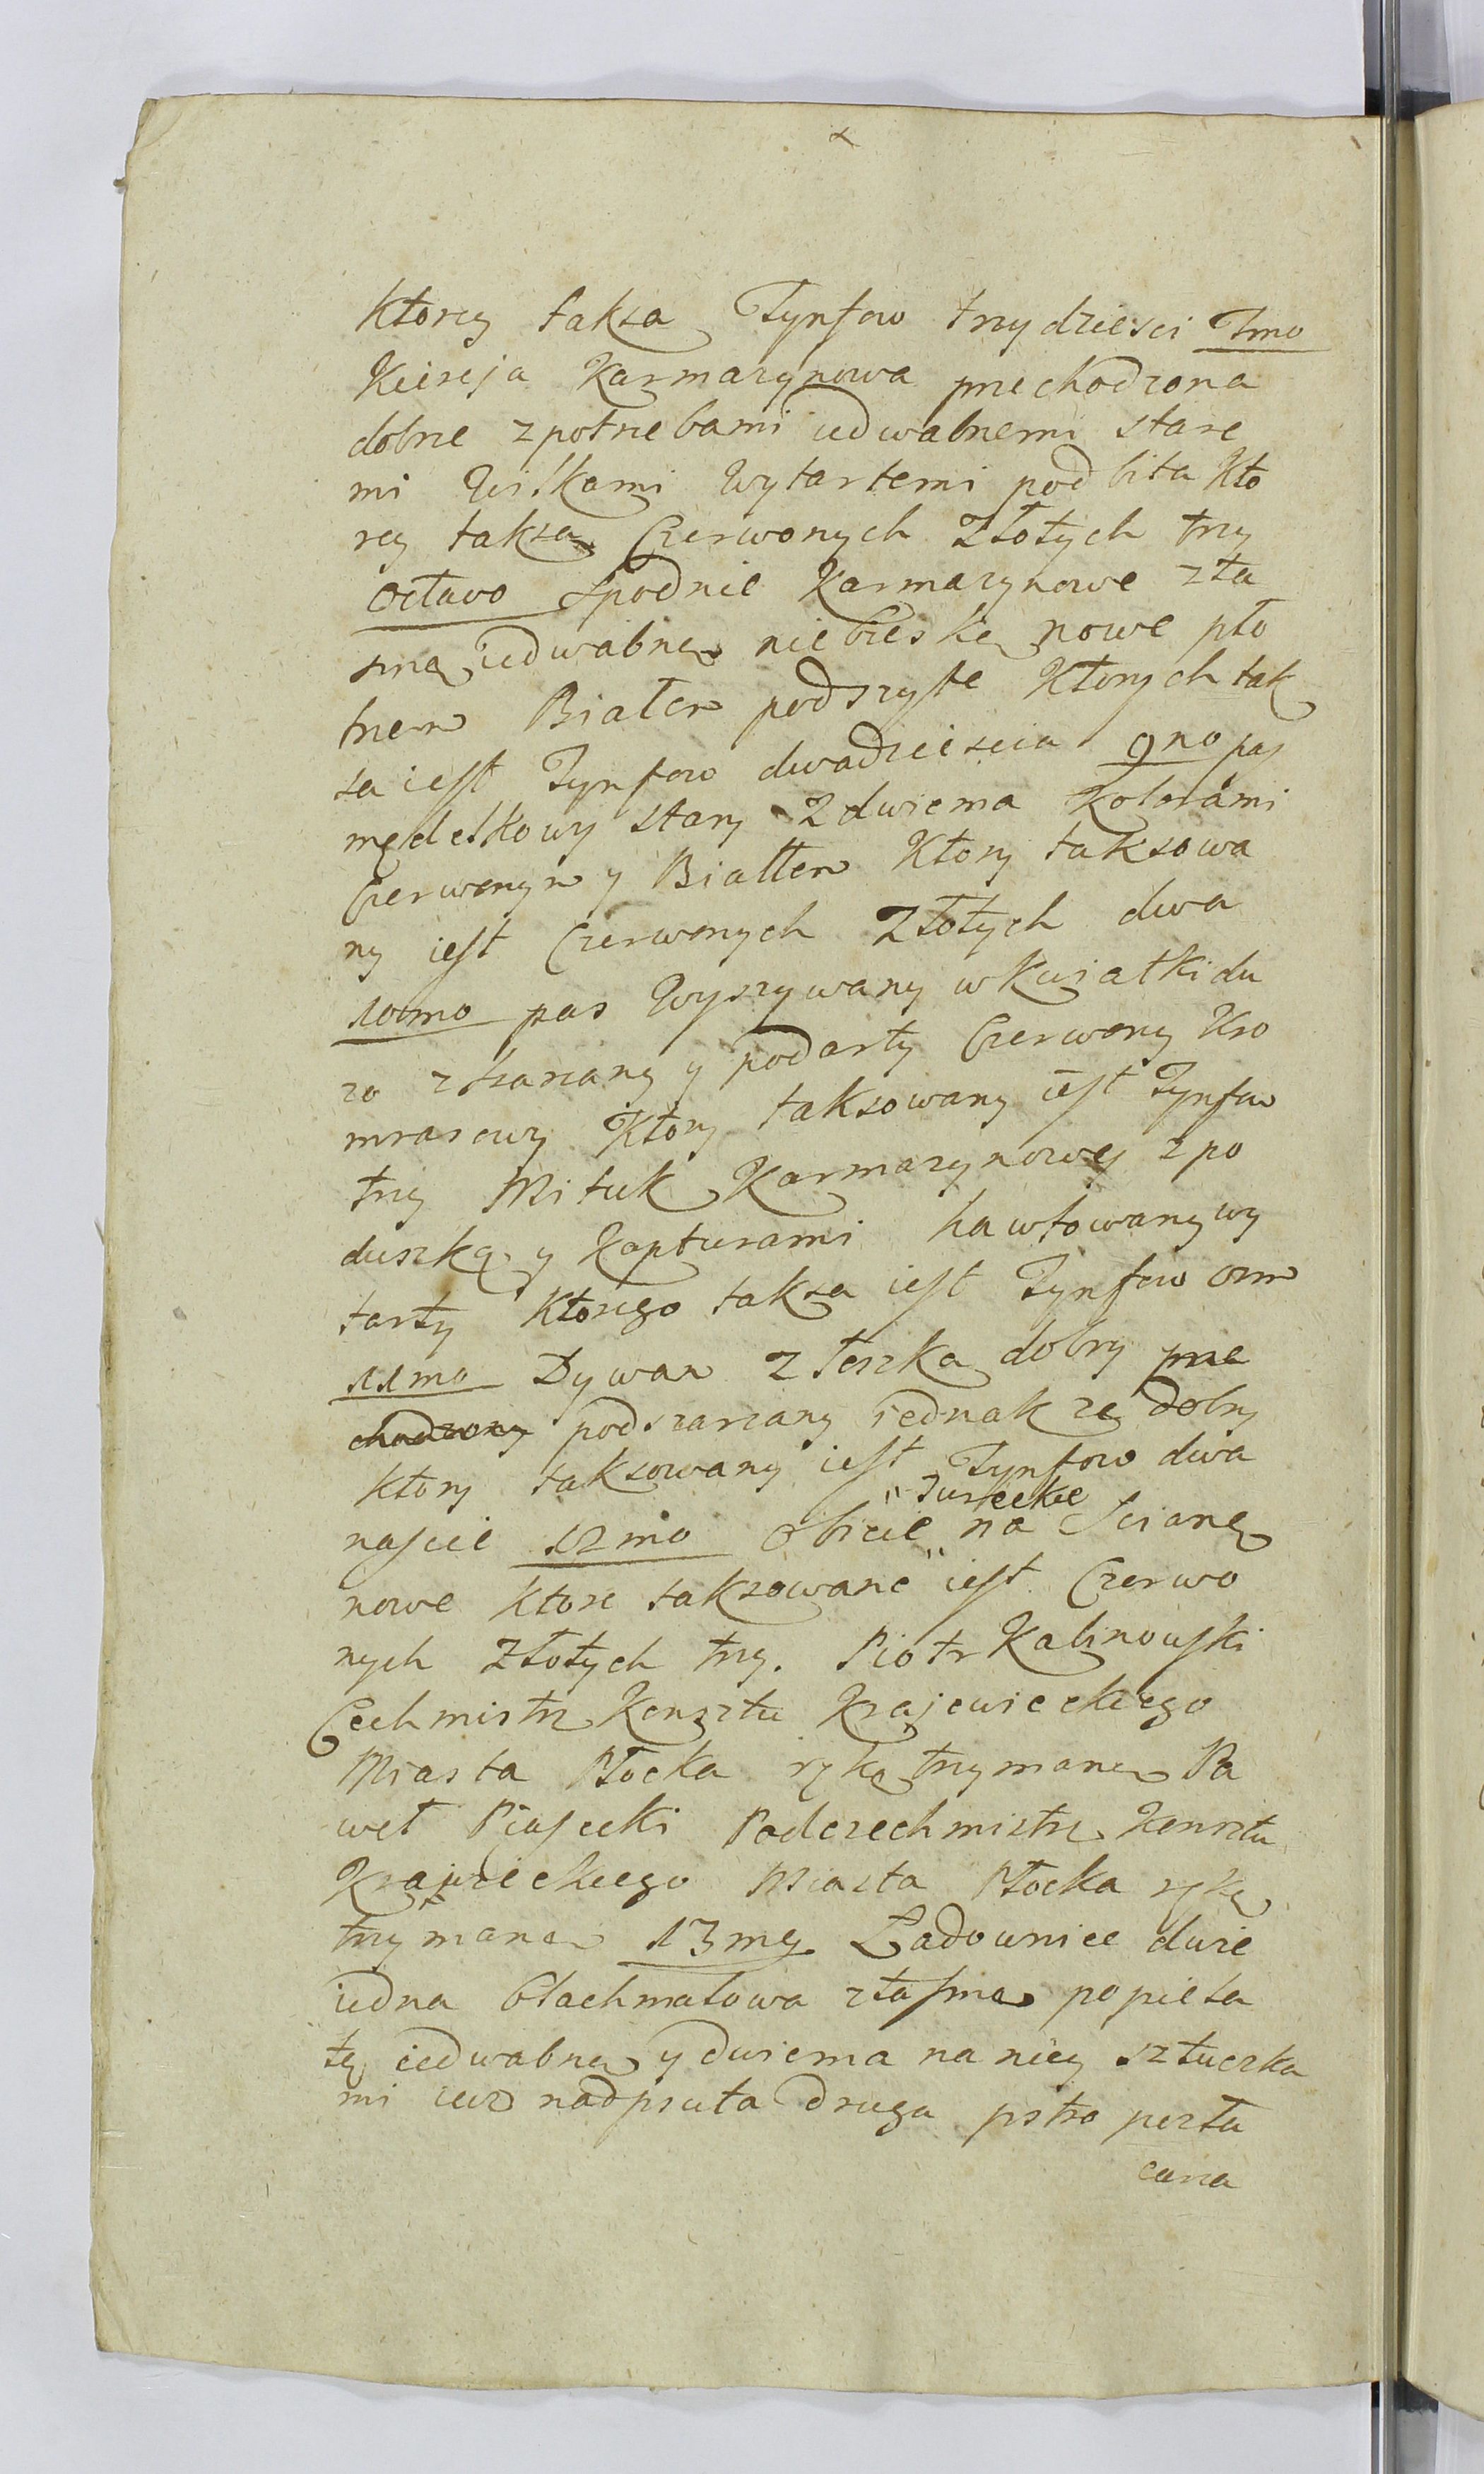 x
Ktorey taksa Tynfow trzydziesci 7mo
Kiereja Karmazynowa przechodzona
dobrze z potrzebami iedwabnemi stare
mi Wilkami Wytartemi podbita Kto
rey taksa Czerwonych Złotych trzy
octavo Spodnie Karmazynowe z ta
smą iedwabną niebieską nowe pło
tnem Białem podszyte Ktorych tak
sa iest Tynfow dwadziescia 9no pas
mędelkowy stary z dwiema Kolorami
Czerwonym y Białłem Ktory taksowa
ny iest Czerwonych Złotych dwa
10tmo pas Wyszywany w Kwiatki du
zo zszarzany y podarty Czerwony Kro
mrasowy Ktory taksowany iest Tynfow
trzy Mituk Karmazynowy z po
duszką y Kapturami hawtowany wy
tarty Ktorego taksa iest Tynfow osm
11mo Dywan z Teszka dobry prze
chodzony podszarzany iednak ze dobry
Ktory taksowany iest Tynfow dwa
nascie 12mo Obicie " Tureckie " na Scianę
nowe Ktore taksowane iest Czerwo
nych Złotych trzy. Piotr Kalinowski
Cechmistrz Kunsztu Krajewieckiego
Miasta Płocka ręką trzymaną Pa
weł Piasecki Podczechmistrz Kunsztu
Krawieckiego Miasta Płocka ręką
trzymaną 13my Ładownice dwie
iedna blachmalowa z tasmą popiela
tą iedwabną y dwiema na niey sztuczka
mi iuz nadpsuta druga pstro pozła
cana